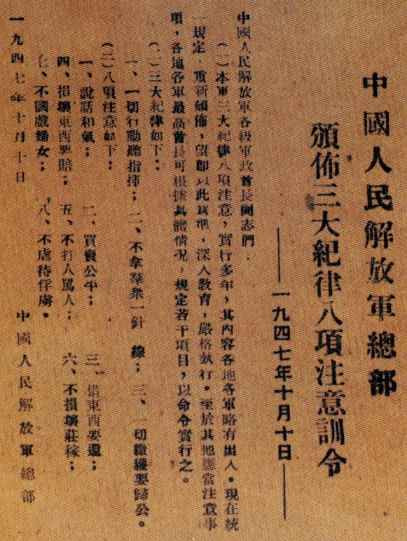 中國人民解放軍總部
頒佈三大紀律八項注意訓令
——一九四七年十月十日——
中國人民解放軍各級軍政首長同志們：
(一)本軍三大紀律八項注意，實行多年，其內容各地各軍略有出入。現在統
一規定，重新頒佈，望即以此為準，深入教育，嚴格執行。至於其他應當注意事
項，各地各軍最高首長可根據具體情況，規定若干項目，以命令實行之。
(二)三大紀律如下：
一、一切行動聽指揮；　二、不拿羣衆一針　線；　三、一切繳獲要歸公。
(三)八項注意如下：
一、說話和氣；　二、買賣公平；　三、借東西要還；
四、損壞東西要賠；　五、不打人罵人；　六、不損壞莊稼；
七、不調戲婦女；　八、不虐待俘虜。
中國人民解放軍總部
一九四七年十月十日